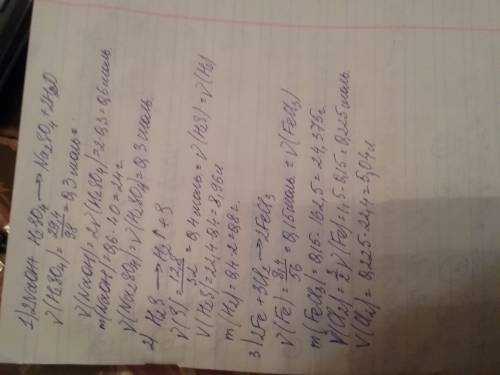 1) 2NaOH + H₂SO₄ → Na₂SO₄ + 2H₂O
ν(H₂SO₄) = 29,4/98 = 0,3 моль.
ν(NaOH) = 2ν(H₂SO₄) = 2·0,3 = 0,6 моль.
m(NaOH) = 0,6·40 = 24 г.
ν(Na₂SO₄) = ν(H₂SO₄) = 0,3 моль
2) H₂S → H₂↑ + S
ν(S) = 12,8/32 = 0,4 моль = ν(H₂S) = ν(H₂)
V(H₂S) = 22,4·0,4 = 8,96 л.
m(H₂) = 0,4·2 = 0,8 г.
3) 2Fe + 3Cl₂ → 2FeCl₃
ν(Fe) = 8,4/56 = 0,15 моль = ν(FeCl₃)
m(FeCl₃) = 0,15·162,5 = 24,375 г.
ν(Cl₂) = 3/2 ν(Fe) = 1,5·0,15 = 0,225 моль
V(Cl₂) = 0,225·22,4 = 5,04 л.